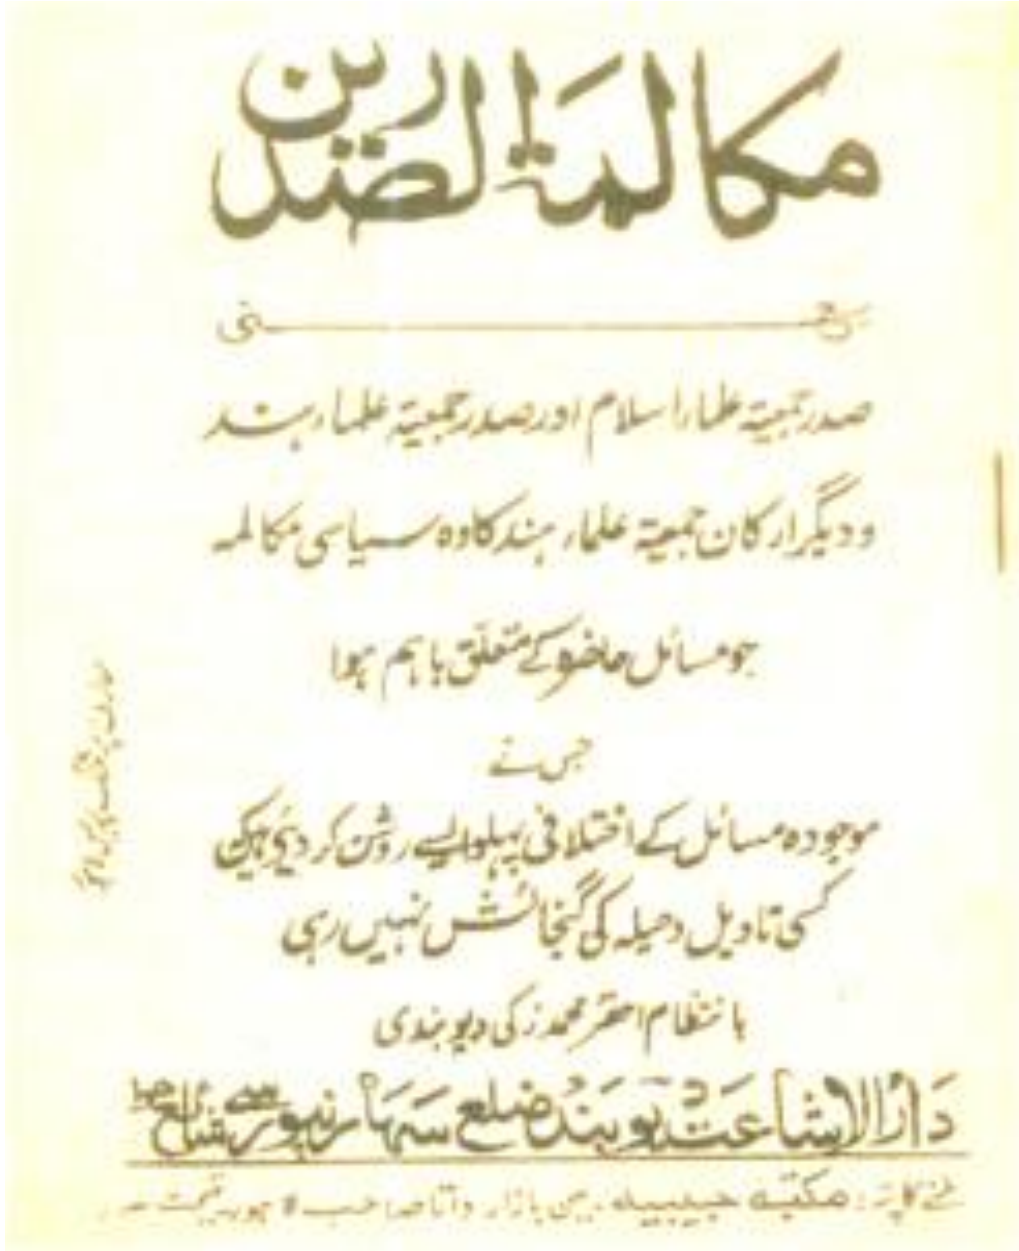 مکالمۃ الصدرین
یعنی
صدر جمعیۃ علماء اسلام اور صدر جمعیۃ علماء ہند
و دیگر ارکان جمعیۃ علماء ہند کا وہ سیاسی مکالمہ
جو مسائل حاضرہ کے متعلق باہم ہوا
جس نے
موجودہ مسائل کے اختلافی پہلو ایسے روشن کر دیئے ہیں کہ
کسی تاویل و حیلہ کی گنجائش نہیں رہی
بانتظام احقر محمد زکی دیوبندی
دارالاشاعت دیوبند ضلع سہارنپور سے شائع ہوا
ملنے کا پتہ: مکتبہ حبیبیہ۔ بازار داتا صاحب لاہور۔ قیمت